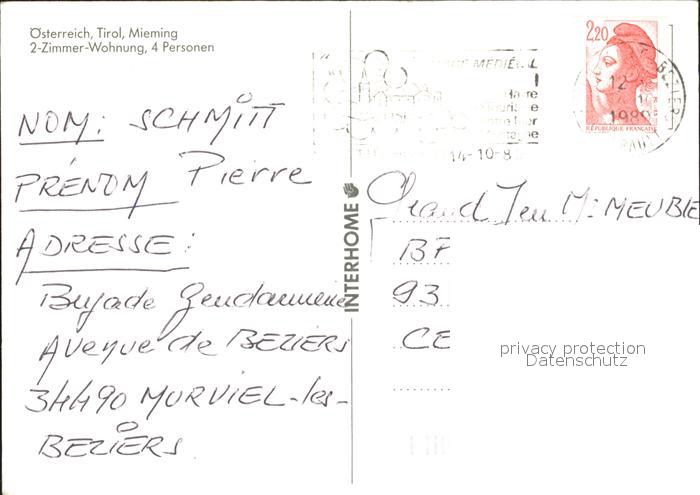 Österreich, Tirol, Mieming
2-Zimmer-Wohnung, 4 Personen
NOM: SCHMITT
PRÉNOM Pierre
ADRESSE:
Brigade Gendarmerie
Avenue de BEZIERS
34490 MURVIEL-les-
BEZIERS
INTERHOME
MÉDIÉVAL
14-10-8
2,20
RÉPUBLIQUE FRANÇAISE
BEZIERS
12
1989
Grand Jeu Mr MEUBLE
BP
93
CE
privacy protection
Datenschutz